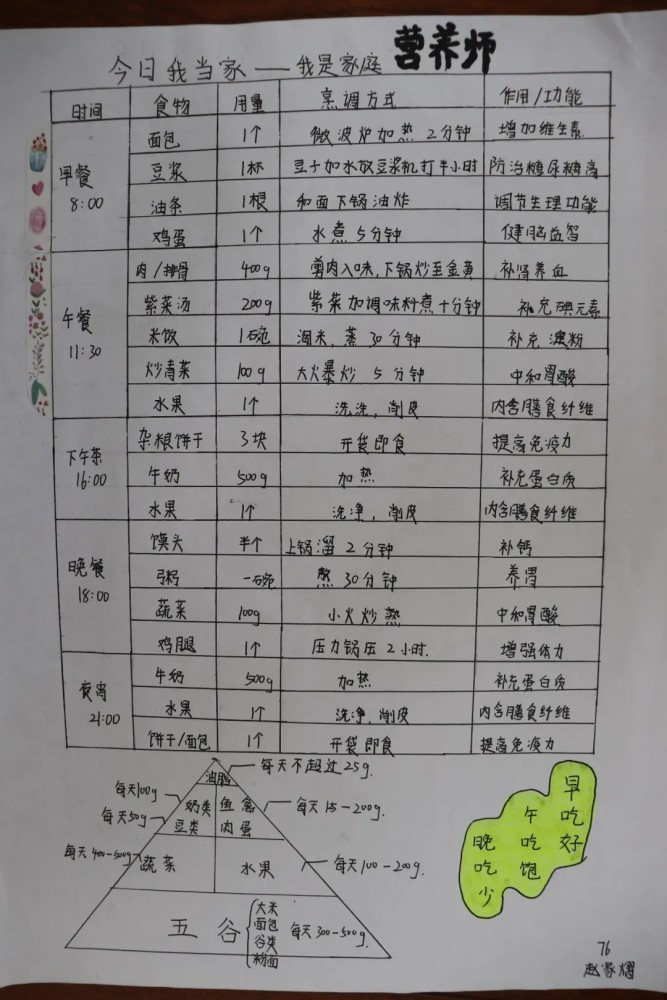 今日我当家——我是家庭营养师
时间 食物 用量 烹调方式 作用/功能
早餐 8:00
面包 1个 微波炉加热2分钟 增加维生素
豆浆 1杯 豆子加水放豆浆机打半小时 防治糖尿糖高
油条 1根 和面下锅油炸 调节生理功能
鸡蛋 1个 水煮5分钟 健脑益智
午餐 11:30
肉/排骨 400g 剪肉入味,下锅炒至金黄 补肾养血
紫菜汤 200g 紫菜加调味料煮十分钟 补充碘元素
米饭 1碗 淘米,蒸30分钟 补充淀粉
炒青菜 100g 大火爆炒5分钟 中和胃酸
水果 1个 洗洗,削皮 内含膳食纤维
下午茶 16:00
杂粮饼干 3块 开袋即食 提高免疫力
牛奶 500g 加热 补充蛋白质
水果 1个 洗净,削皮 内含膳食纤维
晚餐 18:00
馍头 半个 上锅溜2分钟 补钙
粥 一碗 熬30分钟 养胃
蔬菜 100g 小火炒熟 中和胃酸
鸡腿 1个 压力锅压2小时. 增强体力
夜宵 21:00
牛奶 500g 加热 补充蛋白质
水果 1个 洗净,削皮 内含膳食纤维
饼干/面包 1个 开袋即食 提高免疫力
油脂 每天不超过25g.
每天100g 奶类
每天50g 豆类
鱼禽
肉蛋
每天15-200g.
每天400-500g 蔬菜
水果 每天100-200g.
五谷
大米
面包
谷类
粉面
每天300-500g.
早吃好
午吃饱
晚吃少
76
赵家熠